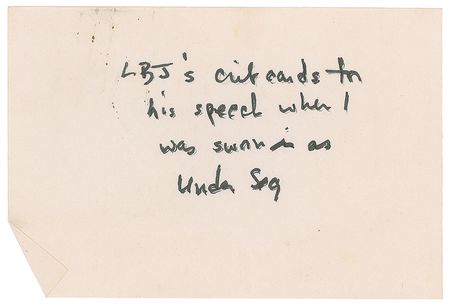 LBJ's cue cards for
his speech when I
was sworn in as
Under Sec